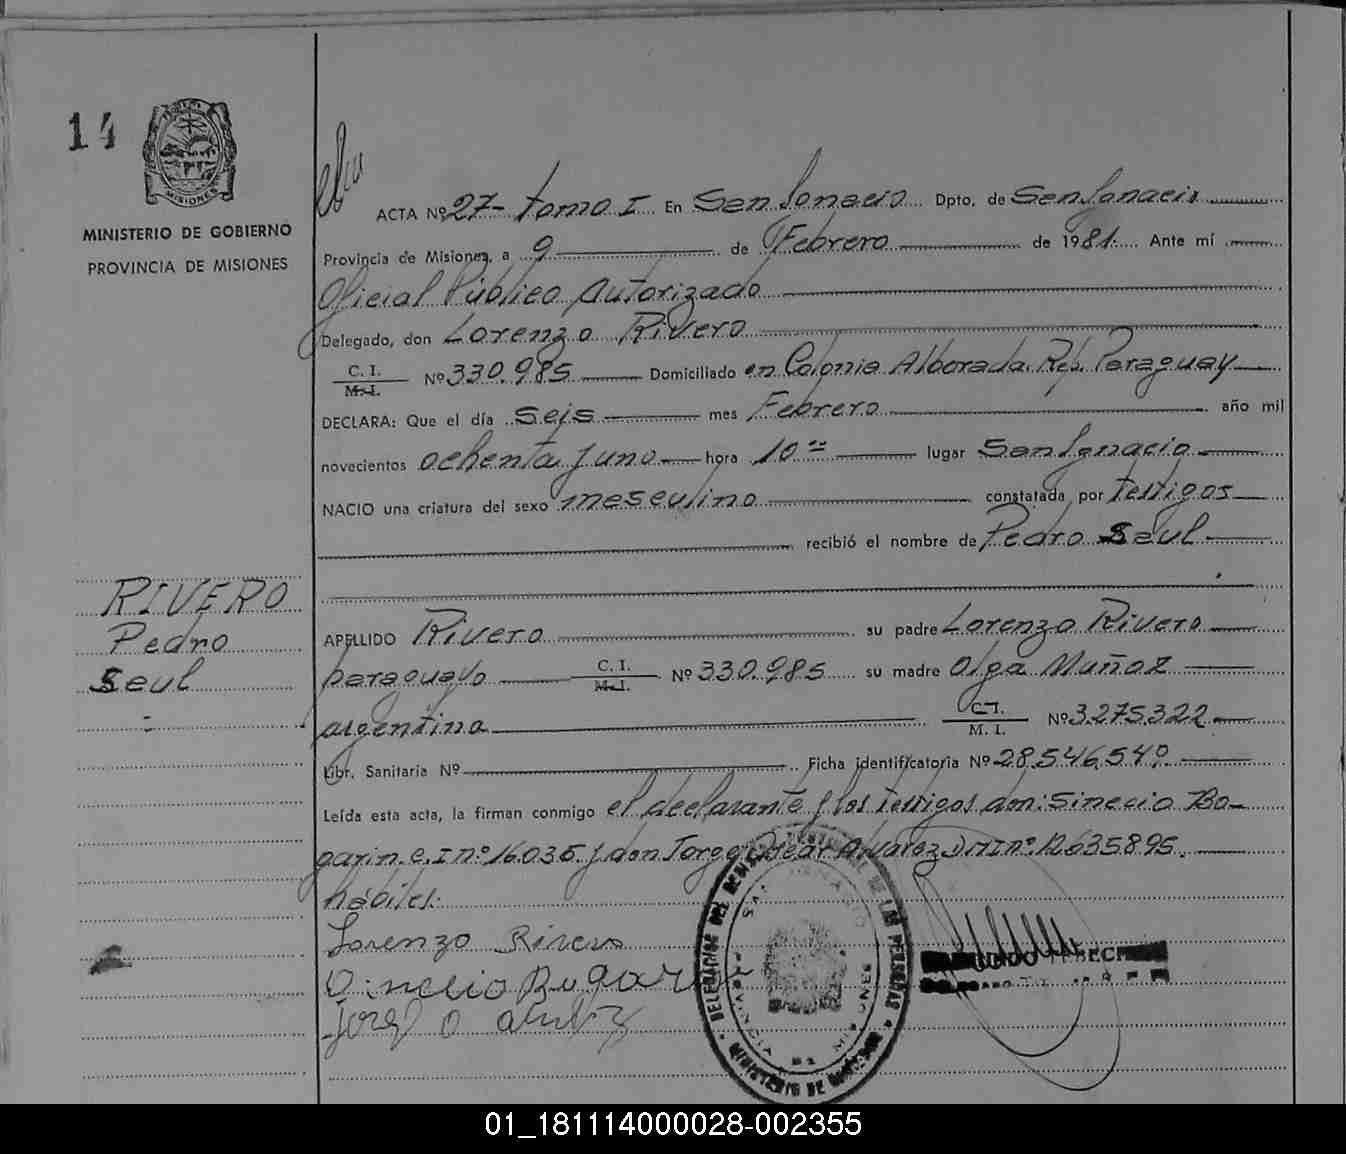 14
MISIONES
MINISTERIO DE GOBIERNO
PROVINCIA DE MISIONES
ACTA Nº 27- tomo I En San Ignacio Dpto. de San Ignacio
Provincia de Misiones, a 9 de Febrero de 1981. Ante mí
Oficial Público Autorizado
Delegado, don Lorenzo Rivero
C. I.
M. I.
Nº 330.985 Domiciliado en Colonia Alborada. Rep. Paraguay
DECLARA: Que el día seis mes Febrero año mil
novecientos ochenta y uno hora 10 lugar San Ignacio
NACIO una criatura del sexo masculino constatada por testigos
recibió el nombre de Pedro Seul
RIVERO
Pedro
Seul
APELLIDO Rivero su padre Lorenzo Rivero
paraguayo C. I. M. I. Nº 330.985 su madre Olga Muñoz
argentina C. I. M. I. Nº 3.275.322
Libr. Sanitaria Nº Ficha identificatoria Nº 28.546.549.
Leída esta acta, la firman conmigo el declarante y los testigos don: Sinecio Bo-
garin. C. I nº 16.035. y don Jorge Oscar Alvarez D M I nº. 12.635.895.
hábiles.
Lorenzo Rivero
DELEGACION DEL DE LAS PERSONAS
SAN IGNACIO
PROVINCIA DE MISIONES
MINISTERIO DE GOBIERNO
01_181114000028-002355